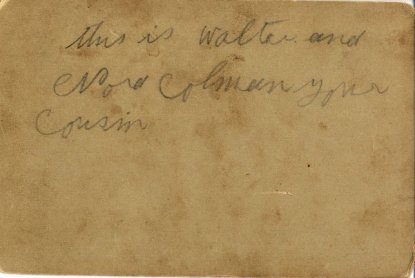 this is Walter and
Nora Colman your
Cousin